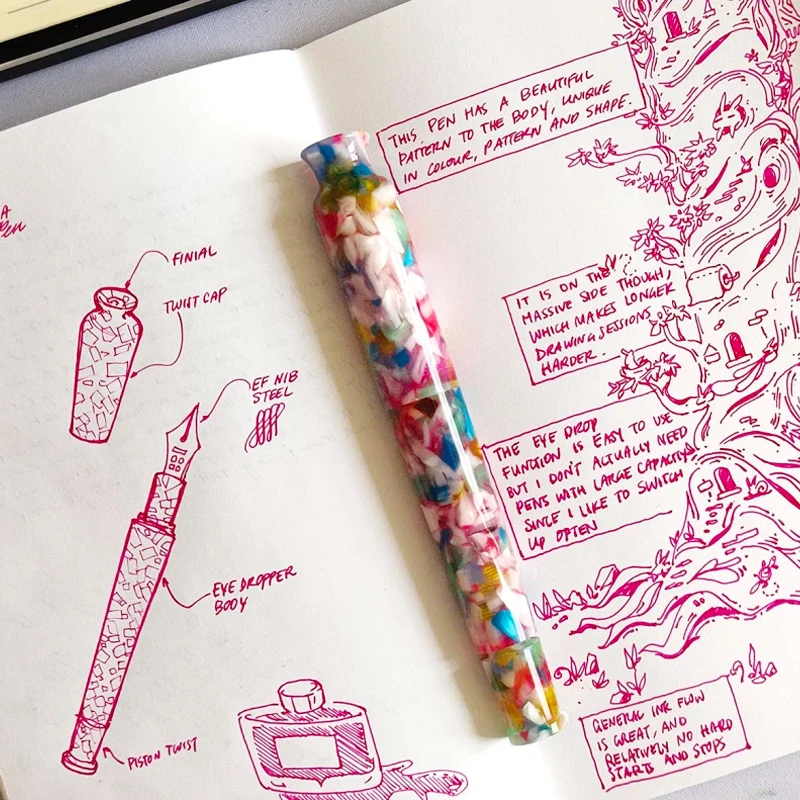 A
Pen
FINIAL
TWIST CAP
EF NIB
STEEL
EYE DROPPER
BODY
PISTON TWIST
THIS PEN HAS A BEAUTIFUL
PATTERN TO THE BODY, UNIQUE
IN COLOUR, PATTERN AND SHAPE.
IT IS ON THE
MASSIVE SIDE THOUGH,
WHICH MAKES LONGER
DRAWING SESSIONS
HARDER.
THE EYE DROP
FUNCTION IS EASY TO USE
BUT I DON'T ACTUALLY NEED
PENS WITH LARGE CAPACITY
SINCE I LIKE TO SWITCH
UP OFTEN
GENERAL INK FLOW
IS GREAT, AND
RELATIVELY NO HARD
STARTS AND STOPS